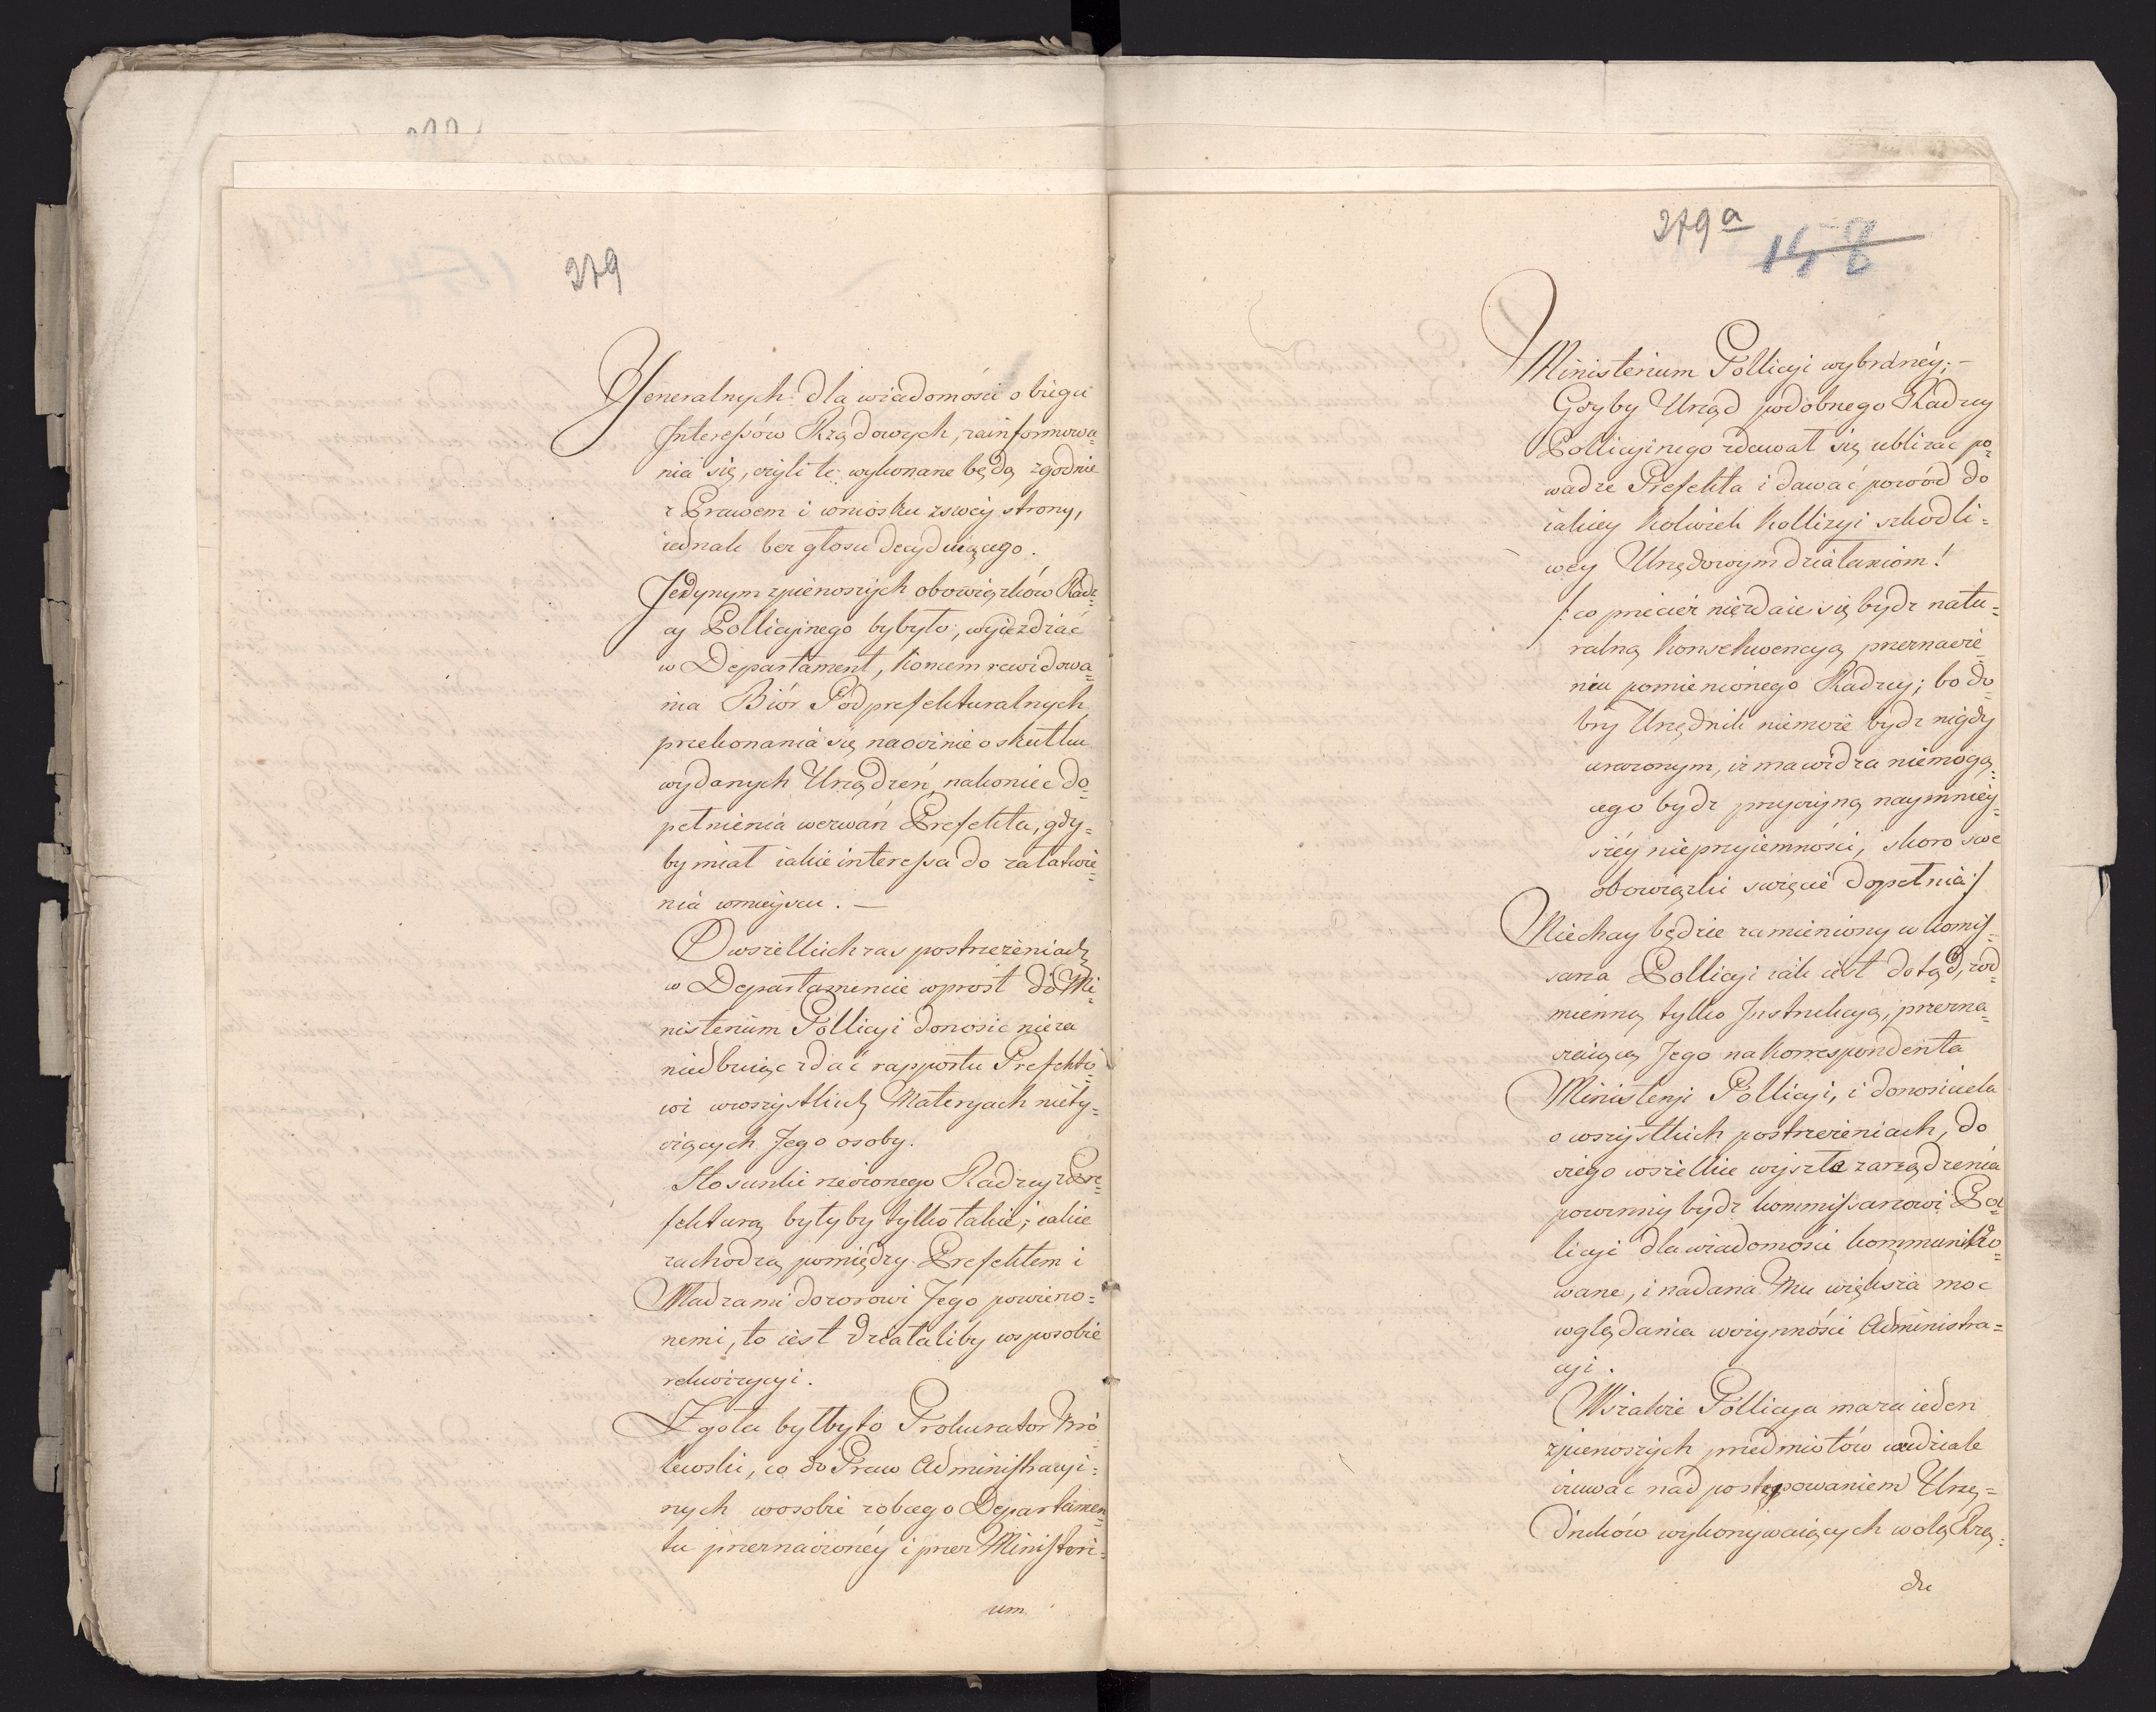 279
Generalnych dla wiadomości o biegu
Interessów Rządowych, zainformowa=
nia się, czyli te wykonane będą zgodnie
z Prawem i wniosku zswey strony,
iednak bez głosu decyduiącego.
Jedynym zpierwszych obowiązków Radz=
cy Pollicyinego bybyło, wyjeżdżać
w Departament, końcem rewidowa=
nia Biór Podprefekturalnych
przekonania się naocznie o skutku
wydanych Urządzeń, nakoniec do=
pełnienia wezwań Prefekta, gdy=
by miał iakie interessa do załatwie=
nia wmieyscu. —
O wszelkich zaś postrzeżeniach
w Departamencie wprost do Mi=
nisterium Pollicyi donosić nieza
niedbuiąc zdać rapportu Prefekto=
wi wwszystkich Materyach niety=
czących Jego osoby.
Stosunki rzeczonego Radzcy z Pre=
fekturą byłyby tylko takie, iakie
zachodzą pomiędzy Prefektem i
Władzami dozorowi Jego powierzo=
nemi, to iest działaliby wsposobie
rekwizycyi.
Zgoła byłbyto Prokurator Kró=
lewski, co do Praw Administracyi=
nych wosobie zobcego Departamen=
tu przeznaczonéy i przez Ministeri=
um
279 a
158
Ministerium Pollicyi wybranéy; —
Gdyby Urząd podobnego Radzcy
Pollicyinego zdawał się ubliżać po=
wadze Prefekta i dawać powód do
iakiey kolwiek kollizyi szkodli=
wey Urzędowym działaniom!
/: co przecież niezdaie się bydz natu=
ralną konsekwencyą przeznacze=
niu pomienionego Radzcy; bo do=
bry Urzędnik niemoże bydz nigdy
urażonym, iż ma widza niemogą=
cego bydz przyczyną naymniey=
széy nieprzyiemności, skoro swe
obowiązki święcie dopełnia :/
Niechay będzie zamieniony w komis=
sarza Pollicyi iak iest dotąd, zod=
mienną tylko Instrukcyą, przezna=
czaiącą Jego na korrespondenta
Ministeryi Pollicyi, i donosiciela
o wszystkich postrzeżeniach, do
czego wszelkie wyszłe zarządzenia
powinny bydz kommissarzowi Pol=
licyi dla wiadomości kommuniko=
wane, i nadana Mu większa moc
wglądania wczynności Administra=
cyi.
Wszakże Pollicya ma za ieden
zpierwszych przedmiotów wudziale
czuwać nad postępowaniem Urzę=
dników wykonywaiących wolą Rzą=
du